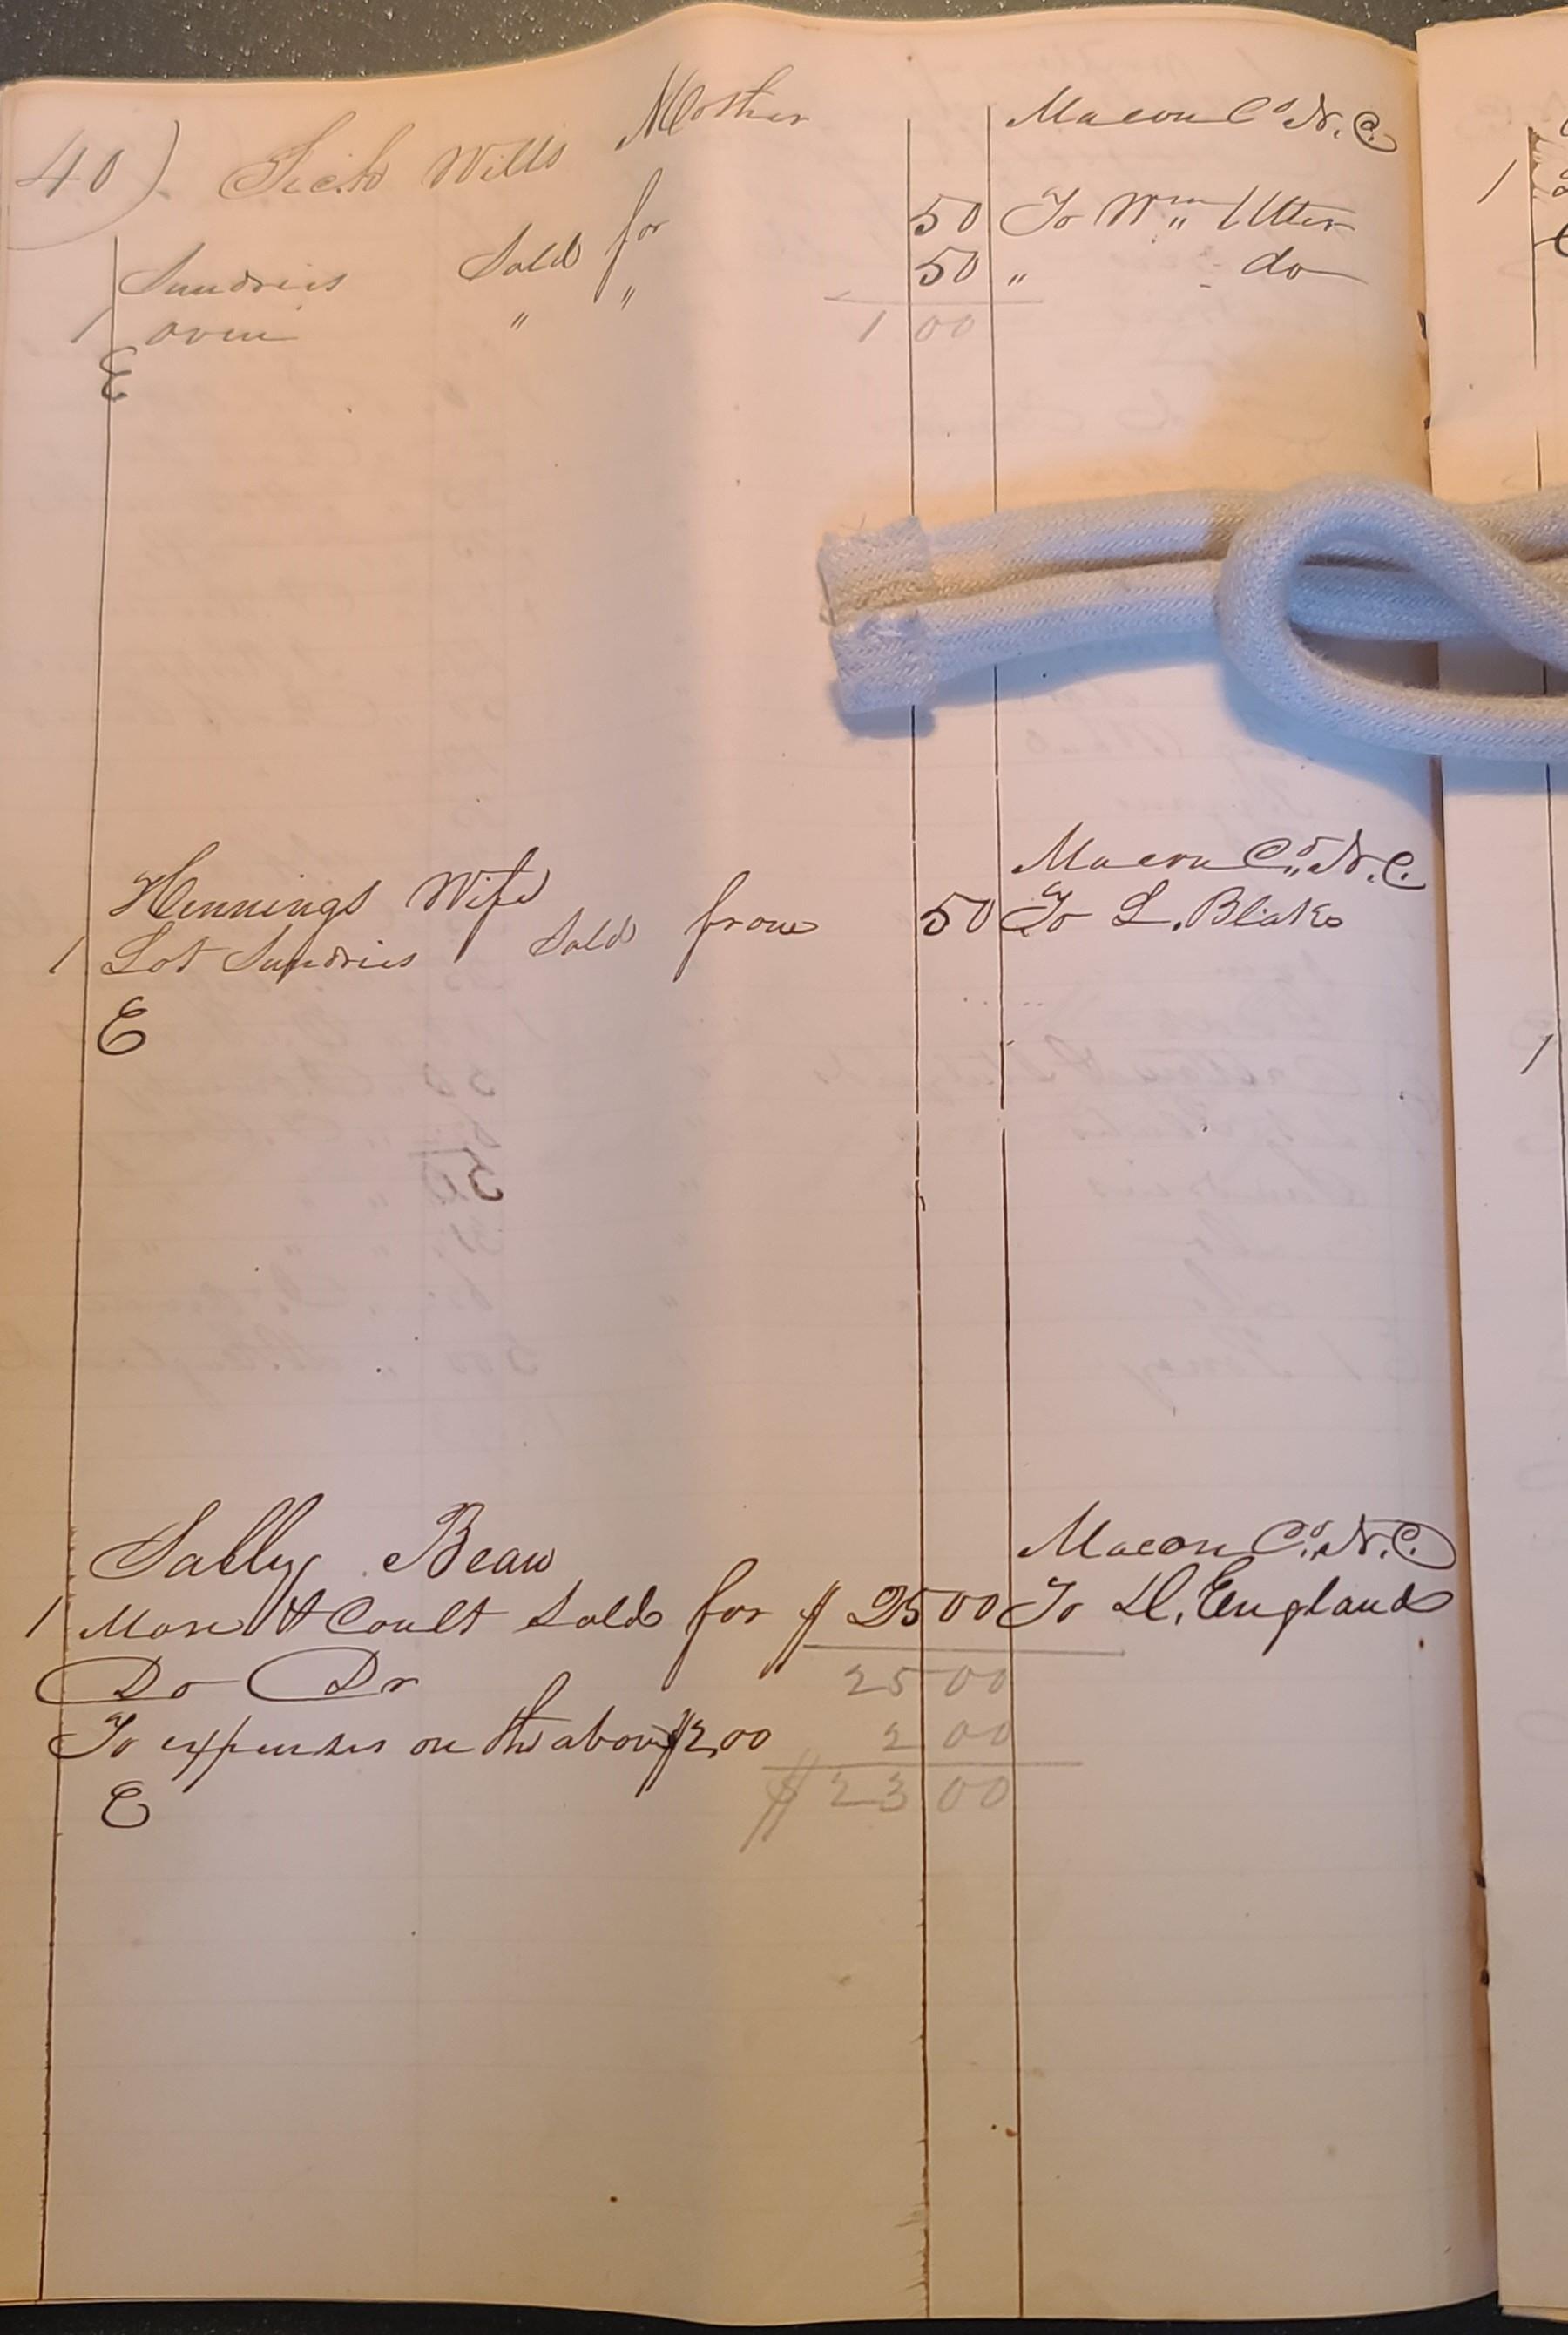 40) Sick Wills Mother Macon Co N. C.
Sundries Sold for 50 To Wm Utter
1 oven " " 50 " do
1 00
E
Hennings Wife Macon Co. N. C.
1 Lot Sundries Sold from 50 To L. Blake
E
Sally Bean Macon Co. N. C.
1 Mare & Coult Sold for $ 25 00 To D. England
Do Dr 25 00
To expenses on the above $2,00 2 00
E $ 23 00